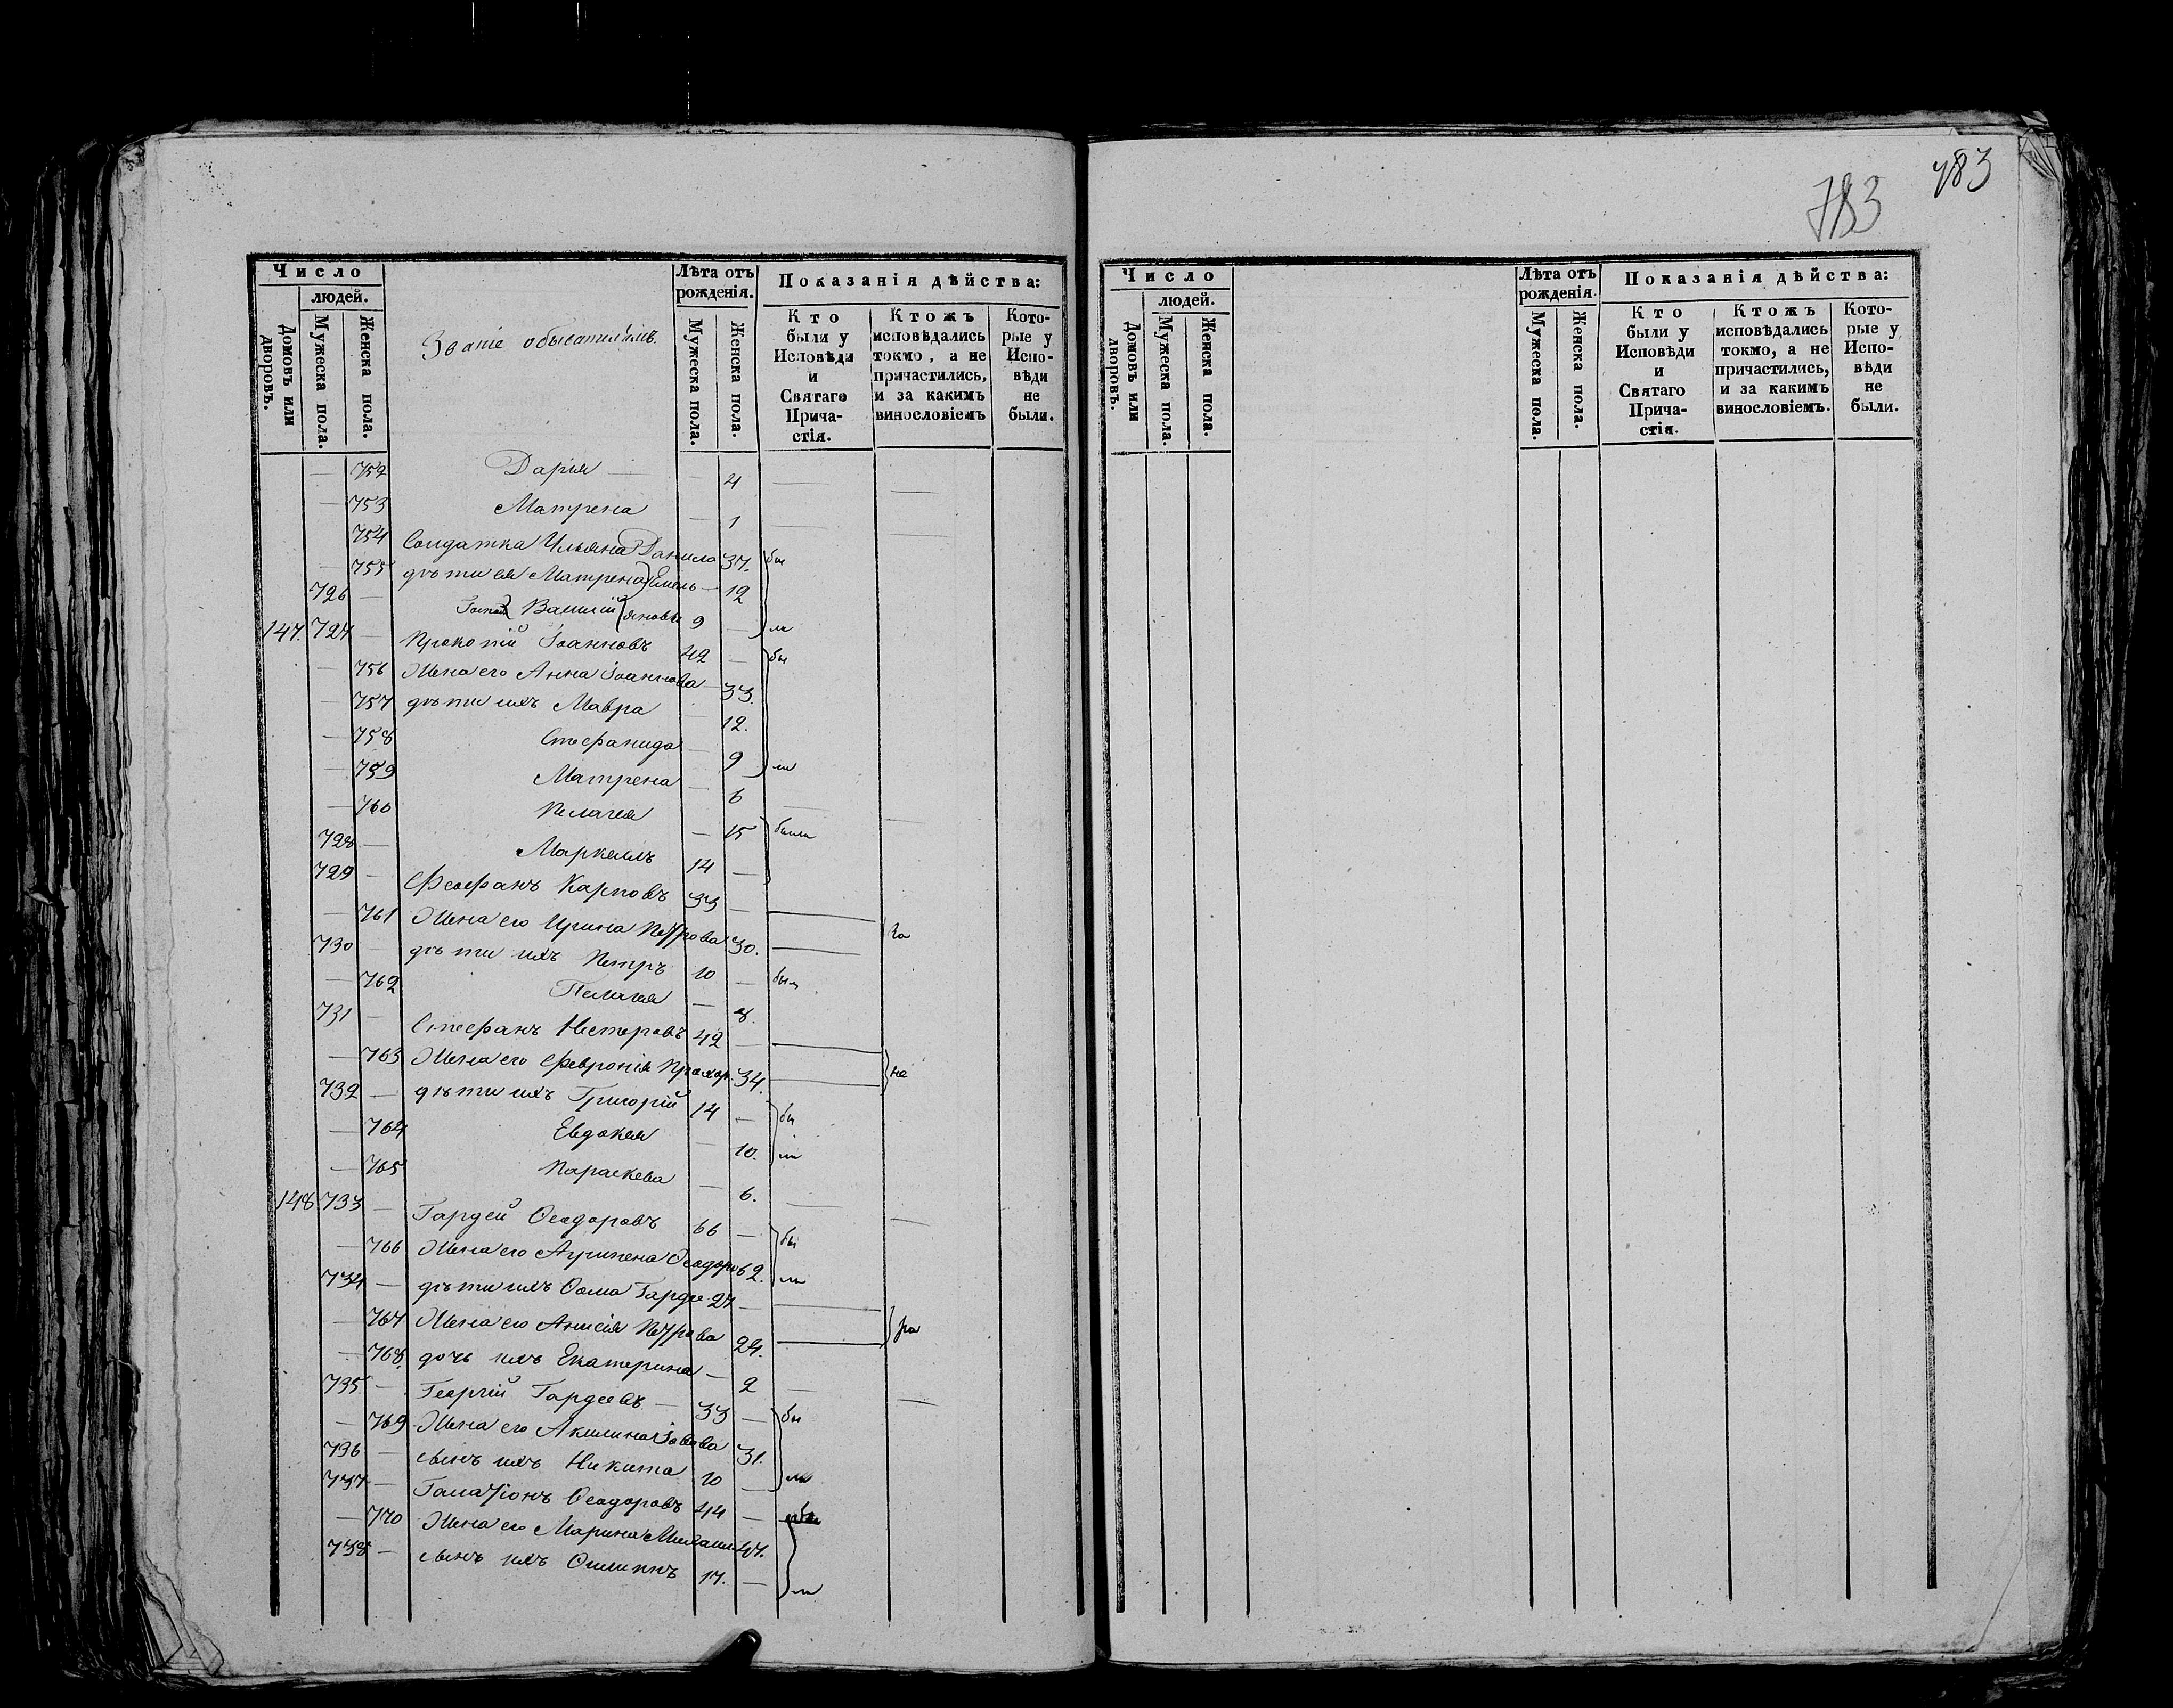 Число
людей.
Домовъ или дворовъ.
Мужеска пола.
Женска пола.
Званіе обывателямъ.
Лѣта отъ рожденія.
Мужеска пола.
Женска пола.
Показанія дѣйства:
Кто были у Исповѣди и Святаго Прича-стія.
Ктожъ исповѣдались токмо, а не причастились, и за какимъ винословіемъ
Кото-рые у Испо-вѣди не были.
— 752 Дарія — — 4 — —
— 753 Матрена — 1 —
754 Солдатка Ульяна Данило 37. бы
— 755 дѣти ея Матрена Емель— 12
726 — Василій яновы 9 — ли
147. 727 — Прокопій Іоанновъ 42 — бы
— 756 Жена его Анна Іоаннова — 33.
— 757 дѣти ихъ Мавра — 12.
— 758 Стефанида — 9 ли
— 759 Матрена — 6 —
— 760 Пелагея — 15 были
728 — Маркеллъ 14 —
729 — Феофанъ Карповъ 33 —
— 761 Жена его Ирина Петрова 30. —
730 — дѣти ихъ Петръ 10 — были
— 762 Пелагея — 8.
731 — Стефанъ Нестеровъ 42 —
— 763 Жена его Февронія Прохор. 34. — не
732 — дѣти ихъ Григорій 14 — бы
— 764 Евдокея — 10. ли
— 765 Параскева — 6. —
148 733 — Гордей Ѳеодоровъ 66 — бы
— 766 Жена его Агрипена Ѳеодоров 62. ли
734 — дѣти ихъ Ѳома Горде. 27 —
— 767 Жена его Анисія Петрова 24. —
— 768. дочь ихъ Екатерина — 2 —
735 — Георгій Гордеевъ — 33 — бы
— 769 Жена его Акилина 31.
736 — сынъ ихъ Никита 10 — ли
737 — Галактіонъ Ѳеодоровъ 44 —
— 770 Жена его Марина Михаил. 47.
738 — сынъ ихъ Филиппъ 17. — ли
783
783
Число
людей.
Домовъ или дворовъ.
Мужеска пола.
Женска пола.
Лѣта отъ рожденія.
Мужеска пола.
Женска пола.
Показанія дѣйства:
Кто были у Исповѣди и Святаго Прича-стія.
Ктожъ исповѣдались токмо, а не причастились, и за какимъ винословіемъ.
Кото-рые у Испо-вѣди не были.